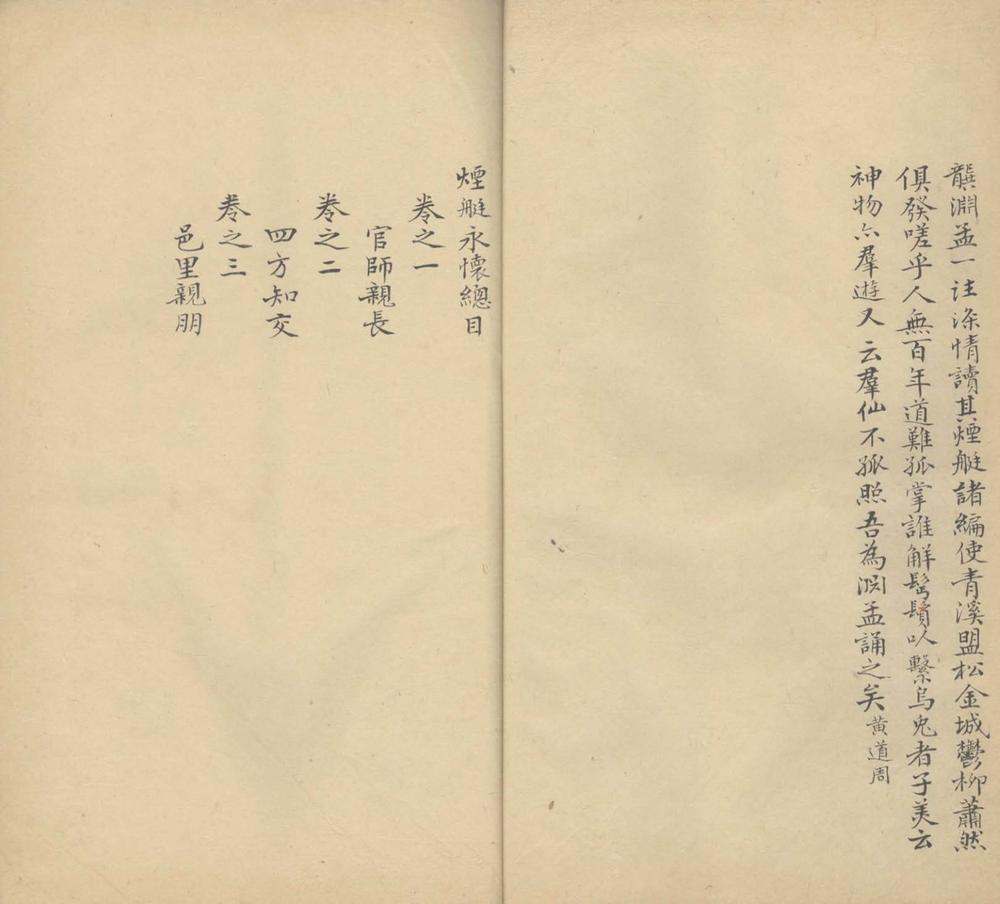 龔淵孟一注深情讀其煙艇諸編使青溪盟松金城鬱柳蕭然
俱發嗟乎人無百年道難孤掌誰解髩鬚以繫烏兎者子美云
神物亦羣遊又云羣仙不孤照吾為渕孟誦之矣黃道周
煙艇永懷總目
卷之一
官師親長
卷之二
四方知交
卷之三
邑里親朋